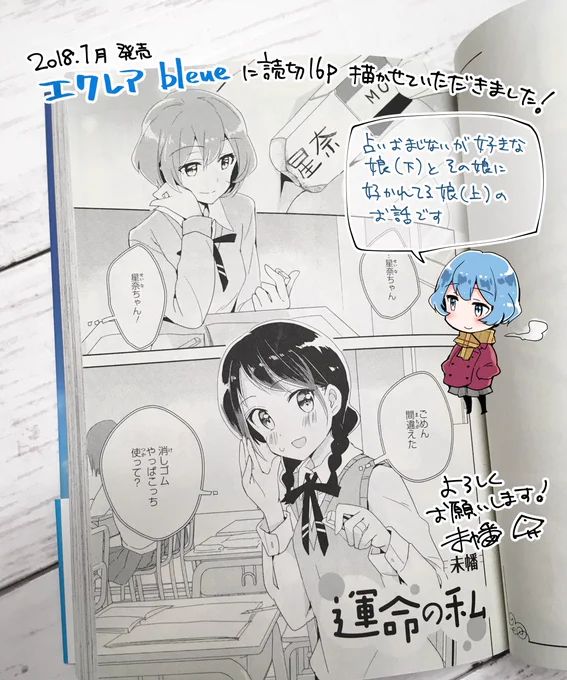 2018.7月 発売
エクレア bleue に読切16p 描かせていただきました!
占いおまじないが好きな
娘(下)とその娘に
好かれてる娘(上)の
お話です
星奈
MO
星奈ちゃん
せいな
星奈ちゃん!
せいな
ごめん
間違えた
まちが
消しゴム
け
やっぱこっち
使って?
つか
運命の私
よろしく
お願いします!
未幡
未幡